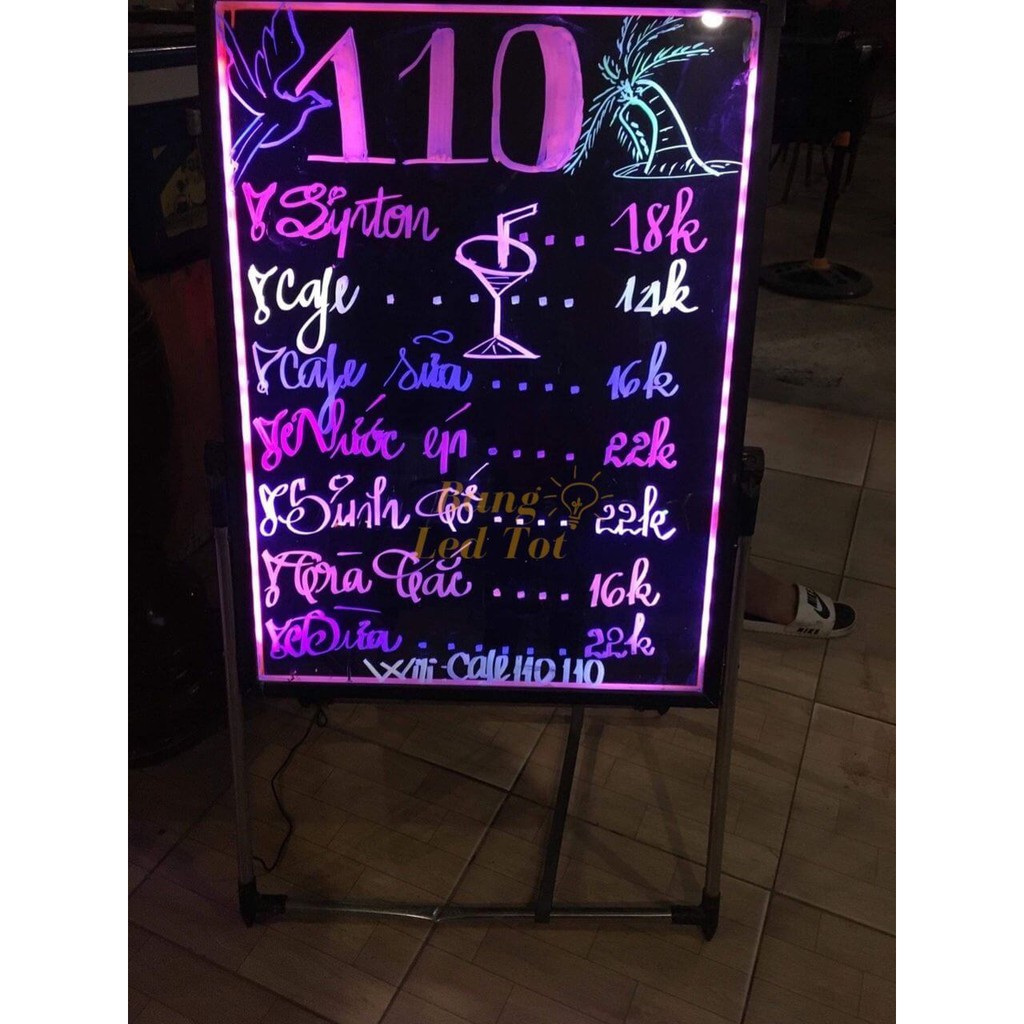 110
Lipton .... 18k
Cafe ...... 14k
Cafe sữa .... 16k
Nước ép .... 22k
Sinh Tố .... 22k
Trà Tắc .... 16k
Dừa ...... 22k
Wifi - Cafe 110 110
Bang
Led Tot
NIKE